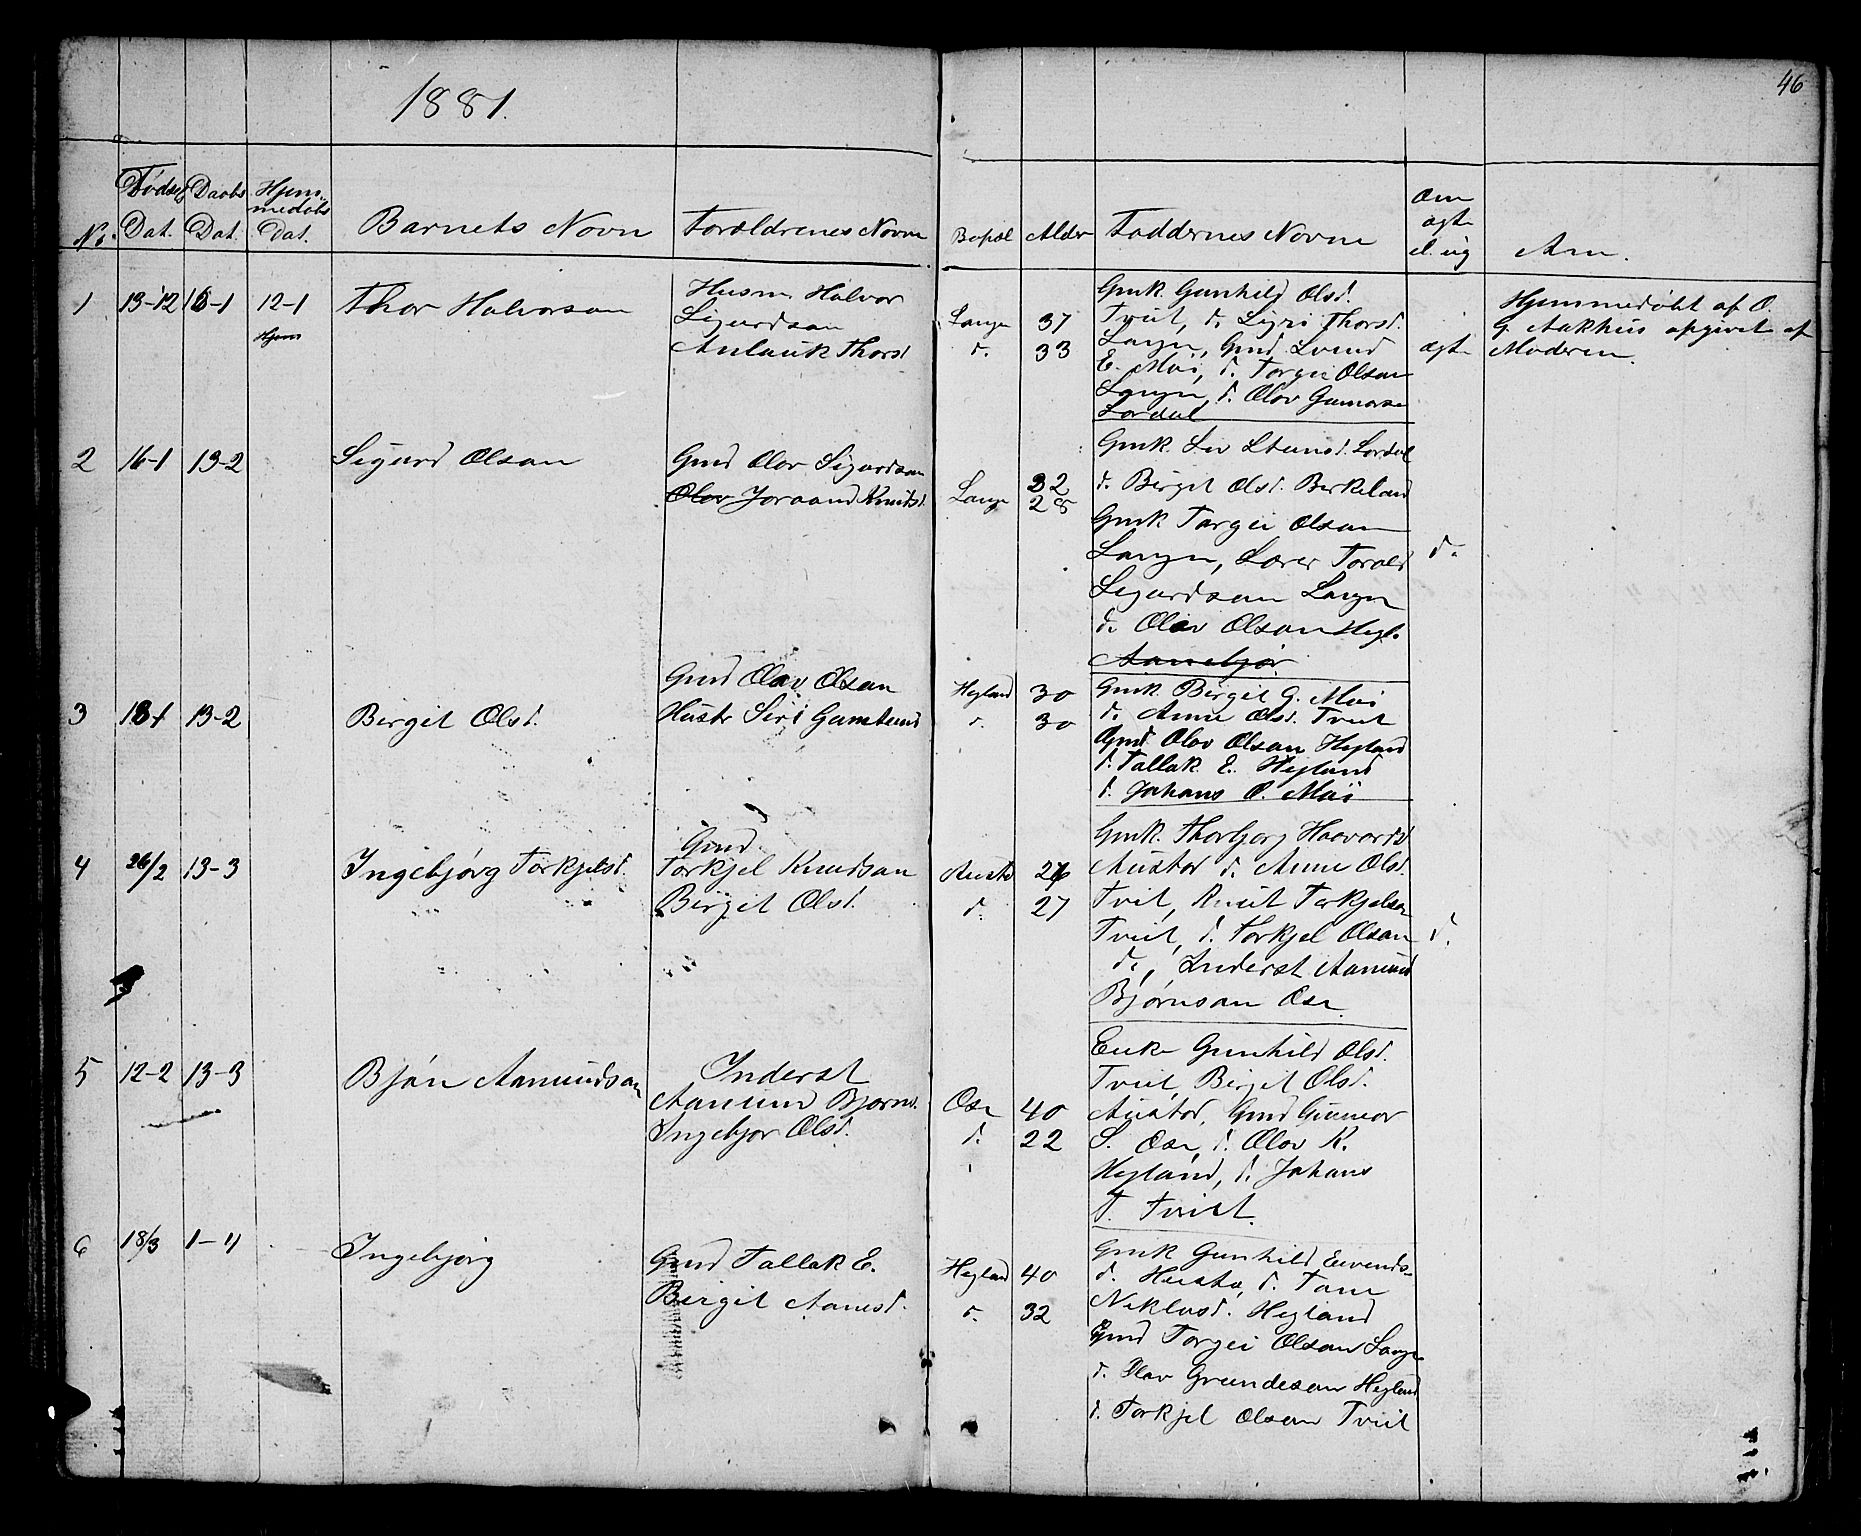 46
1881.
No. Fødsels Dat. Daabs Dat. Hjem- medøbs Dat. Barnets Navn Foraldrenes Navne Bopæl Alder Faddernes Navne Om ægte el. uæg Am.
1 13-12 16-1 12-1 Hjem Thor Halvorson
Husm. Halvor
Sigurdson
Anlauk Thorsd
Langei 37
d. 33
Gmk. Gunhild Olsd.
Tveit, d. Sigri Thorsd.
Langei, Gmd Svend
E. Moi, d. Torgei Olson
Langei, d. Olov Gunnarsen
Lordal
ægte
Hjemmedøbt af O.
G. Aakhus opgivet af
Moderen.
2 16-1 13-2 Sigurd Olson
Gmd Olov Sigurdson
Olov Joraand Knutsd.
Langei 32
28
Gmk. Liv Steinsd. Lordal
d. Birgit Olsd. Birkeland
Gmk Torgei Olson
Langei, Lærer Torald
Sigurdson Langei
d. Olav Olson Hegl.
Aanebjør
d.
3 13-2 Birgit Olsd.
Gmd Olav Olson
Hustr Siri
Hegland 30
d. 30
Gmk. Birgit G. Moi
d. Anne Olsd. Tveit
Gmd. Olov Olson Hegland
d. Tallak E. Hegland
d. Johans O. Moi
4 26/2 13-3 Ingebjørg Torkjelsd.
Gmd.
Torkjel Knudson
Birgit Olsd.
Austad 26
d. 27
Gmk. Thorbjørg Haavardsd
Austad d. Anne Olsd.
Tveit, Knut Torkjelson
Tveit, d. Torkjel Olson
d., Inderst Aamund
Bjørnson Ose.
d.
5 12-2 13-3 Bjøn Aamundson
Inderst
Aamund Bjørns.
Ingebjør Olsd.
Ose 40
d. 22
Enke Gunhild Olsd.
Tveit, Birgit Olsd.
Austad, Gmd Gunnar
S. Ose, d. Olov K.
Hegland, d. Johans
T. Tveit.
6 18/3 1-4 Ingebjørg
Gmd Tallak E.
Birgit Aanesd.
Hegland 40
d. 32
Gmk Gunhild Eivends-
d. Hustr, d. Tone
Niklosd. Hegland
Gmd Torgei Olson Langei
d. Olav Gundeson Hegland
d. Torkjel Olson Tveit